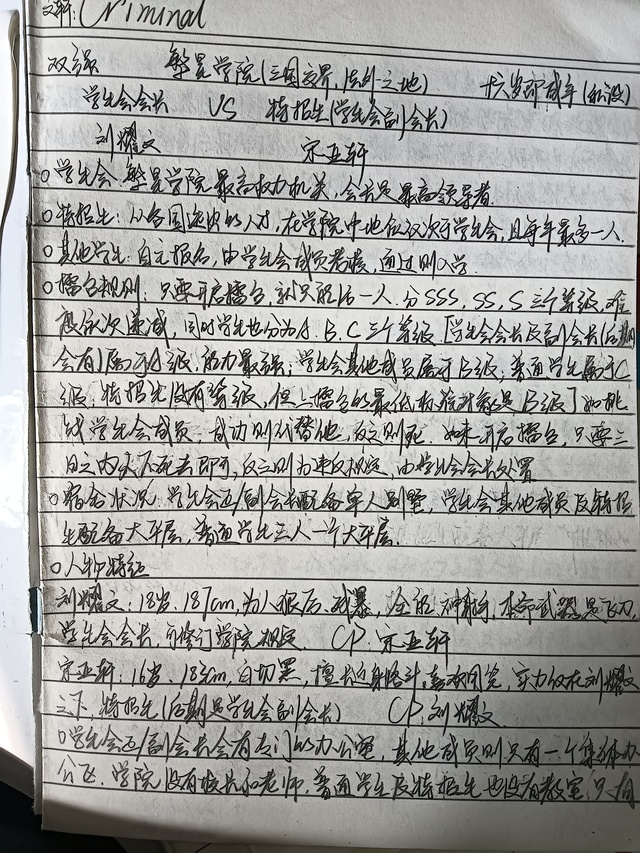 文轩: Criminal
双强 繁星学院(三国交界,法外之地) 十六岁即成年(私设)
学生会会长 VS 特招生(学生会副会长)
刘耀文 宋亚轩
○学生会:繁星学院最高权力机关,会长是最高领导者.
○特招生:从各国选出的人才,在学院中地位仅次于学生会,且每年最多一人.
○其他学生:自主报名,由学生会成员考核,通过则入学.
○擂台规则:只要开启擂台,就只能活一人.分SSS,SS,S三个等级,难
度依次递减,同时学生也分为A、B、C三个等级[学生会会长及副会长(后期
会有)属于A级,能力最强;学生会其他成员属于B级;普通学生属于C
级;特招生没有等级,但上擂台的最低标准是B级]如挑
战学生会成员,成功则代替他,反之则死.如未开启擂台,只要三
日之内死去即可,反之则为违反规定,由学生会会长处置
○宿舍状况:学生会正/副会长配备单人别墅,学生会其他成员及特招
生配备大平层,普通学生三人一个大平层.
○人物特征
刘耀文:18岁,187cm,为人狠厉、残暴,全能神射手,本命武器是飞刀,
学生会会长,可修订学院规定. CP:宋亚轩
宋亚轩:16岁,183cm,白切黑,擅长近身格斗,喜欢闭笔,实力仅在刘耀文
之下,特招生(后期是学生会副会长) CP:刘耀文
○学生会正/副会长会有专门的办公室,其他成员则只有一个集体办
公区.学院没有校长和老师,普通学生及特招生也没有教室,只有